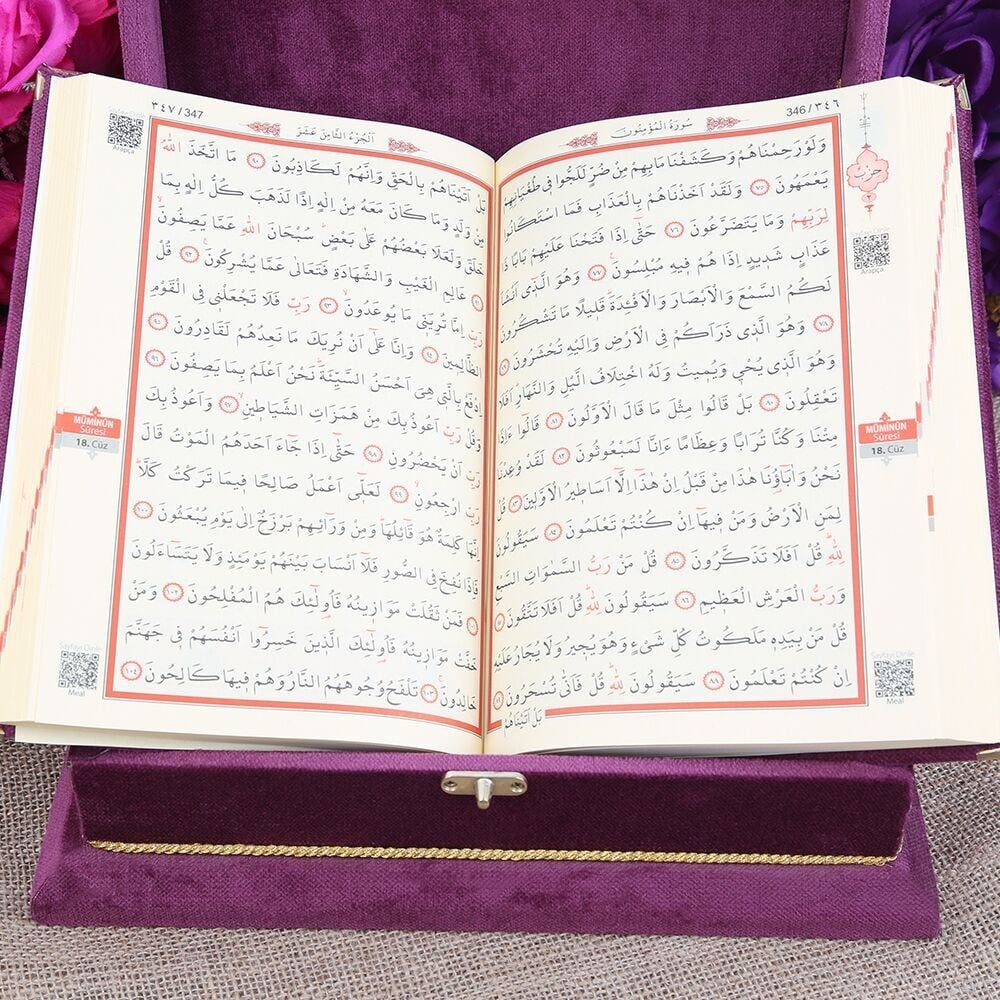 346 / ٣٤٦
سُورَةُ الْمُؤْمِنُونَ
وَلَوْ رَحِمْنَاهُمْ وَكَشَفْنَا مَا بِهِمْ مِنْ ضُرٍّ لَلَجُّوا فِى طُغْيَانِهِمْ
يَعْمَهُونَ ﴿٧٥﴾ وَلَقَدْ اَخَذْنَاهُمْ بِالْعَذَابِ فَمَا اسْتَكَانُوا
لِرَبِّهِمْ وَمَا يَتَضَرَّعُونَ ﴿٧٦﴾ حَتّٰٓى اِذَا فَتَحْنَا عَلَيْهِمْ بَابًا ذَا
عَذَابٍ شَدِيدٍ اِذَا هُمْ فِيهِ مُبْلِسُونَ ﴿٧٧﴾ وَهُوَ الَّذِٓى اَنْشَاَ
لَكُمُ السَّمْعَ وَالْاَبْصَارَ وَالْاَفْـِٔدَةَ قَلِيلًا مَا تَشْكُرُونَ
﴿٧٨﴾ وَهُوَ الَّذِى ذَرَاَكُمْ فِى الْاَرْضِ وَاِلَيْهِ تُحْشَرُونَ ﴿٧٩﴾
وَهُوَ الَّذِى يُحْيِى وَيُمِيتُ وَلَهُ اخْتِلَافُ الَّيْلِ وَالنَّهَارِ اَفَلَا
تَعْقِلُونَ ﴿٨٠﴾ بَلْ قَالُوا مِثْلَ مَا قَالَ الْاَوَّلُونَ ﴿٨١﴾ قَالُٓوا ءَاِذَا
مِتْنَا وَكُنَّا تُرَابًا وَعِظَامًا ءَاِنَّا لَمَبْعُوثُونَ ﴿٨٢﴾ لَقَدْ وُعِدْنَا
نَحْنُ وَاٰبَٓاؤُ۬نَا هٰذَا مِنْ قَبْلُ اِنْ هٰذَٓا اِلَّٓا اَسَاطِيرُ الْاَوَّلِينَ ﴿٨٣﴾ قُلْ
لِمَنِ الْاَرْضُ وَمَنْ فِيهَٓا اِنْ كُنْتُمْ تَعْلَمُونَ ﴿٨٤﴾ سَيَقُولُونَ
لِلّٰهِ قُلْ اَفَلَا تَذَكَّرُونَ ﴿٨٥﴾ قُلْ مَنْ رَبُّ السَّمٰوَاتِ السَّبْعِ
وَرَبُّ الْعَرْشِ الْعَظِيمِ ﴿٨٦﴾ سَيَقُولُونَ لِلّٰهِ قُلْ اَفَلَا تَتَّقُونَ ﴿٨٧﴾
قُلْ مَنْ بِيَدِهِ مَلَكُوتُ كُلِّ شَىْءٍ وَهُوَ يُجِيرُ وَلَا يُجَارُ عَلَيْهِ
اِنْ كُنْتُمْ تَعْلَمُونَ ﴿٨٨﴾ سَيَقُولُونَ لِلّٰهِ قُلْ فَاَنّٰى تُسْحَرُونَ ﴿٨٩﴾
بَلْ اَتَيْنَاهُمْ
حِزْبْ
٢
Arapça
MÜMİNÛN
Sûresi
18. Cüz
Sayfayı Dinle
Meal
٣٤٧ / 347
اَلْجُزْءُ الثَّامِنَ عَشَرَ
بَلْ اَتَيْنَاهُمْ بِالْحَقِّ وَاِنَّهُمْ لَكَاذِبُونَ ﴿٩٠﴾ مَا اتَّخَذَ اللّٰهُ
مِنْ وَلَدٍ وَمَا كَانَ مَعَهُ مِنْ اِلٰهٍ اِذًا لَذَهَبَ كُلُّ اِلٰهٍ بِمَا
خَلَقَ وَلَعَلَا بَعْضُهُمْ عَلٰى بَعْضٍ سُبْحَانَ اللّٰهِ عَمَّا يَصِفُونَ
﴿٩١﴾ عَالِمِ الْغَيْبِ وَالشَّهَادَةِ فَتَعَالٰى عَمَّا يُشْرِكُونَ ﴿٩٢﴾ قُلْ
رَبِّ اِمَّا تُرِيَنِّى مَا يُوعَدُونَ ﴿٩٣﴾ رَبِّ فَلَا تَجْعَلْنِى فِى الْقَوْمِ
الظَّالِمِينَ ﴿٩٤﴾ وَاِنَّا عَلٰٓى اَنْ نُرِيَكَ مَا نَعِدُهُمْ لَقَادِرُونَ ﴿٩٥﴾
اِدْفَعْ بِالَّتِى هِىَ اَحْسَنُ السَّيِّئَةَ نَحْنُ اَعْلَمُ بِمَا يَصِفُونَ ﴿٩٦﴾
وَقُلْ رَبِّ اَعُوذُ بِكَ مِنْ هَمَزَاتِ الشَّيَاطِينِ ﴿٩٧﴾ وَاَعُوذُ بِكَ
رَبِّ اَنْ يَحْضُرُونِ ﴿٩٨﴾ حَتّٰٓى اِذَا جَٓاءَ اَحَدَهُمُ الْمَوْتُ قَالَ
رَبِّ ارْجِعُونِ ﴿٩٩﴾ لَعَلِّٓى اَعْمَلُ صَالِحًا فِيمَا تَرَكْتُ كَلَّا
اِنَّهَا كَلِمَةٌ هُوَ قَٓائِلُهَا وَمِنْ وَرَٓائِهِمْ بَرْزَخٌ اِلٰى يَوْمِ يُبْعَثُونَ ﴿١٠٠﴾
فَاِذَا نُفِخَ فِى الصُّورِ فَلَٓا اَنْسَابَ بَيْنَهُمْ يَوْمَئِذٍ وَلَا يَتَسَٓاءَلُونَ
﴿١٠١﴾ فَمَنْ ثَقُلَتْ مَوَازِينُهُ فَاُو۬لٰٓئِكَ هُمُ الْمُفْلِحُونَ ﴿١٠٢﴾ وَمَنْ
خَفَّتْ مَوَازِينُهُ فَاُو۬لٰٓئِكَ الَّذِينَ خَسِرُٓوا اَنْفُسَهُمْ فِى جَهَنَّمَ
خَالِدُونَ ﴿١٠٣﴾ تَلْفَحُ وُجُوهَهُمُ النَّارُ وَهُمْ فِيهَا كَالِحُونَ ﴿١٠٤﴾
Sayfayı Dinle
Arapça
MÜMİNÛN
Sûresi
18. Cüz
Sayfayı Dinle
Meal